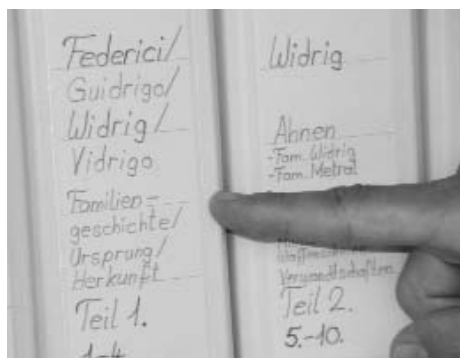 Federici/
Guidrigo/
Widrig/
Vidrigo
Familien=
geschichte/
Ursprung/
Herkunft
Teil 1.
1-4
Widrig
Ahnen
-Fam. Widrig
-Fam. Metral
Verwandtschaften
Teil 2.
5.-10.